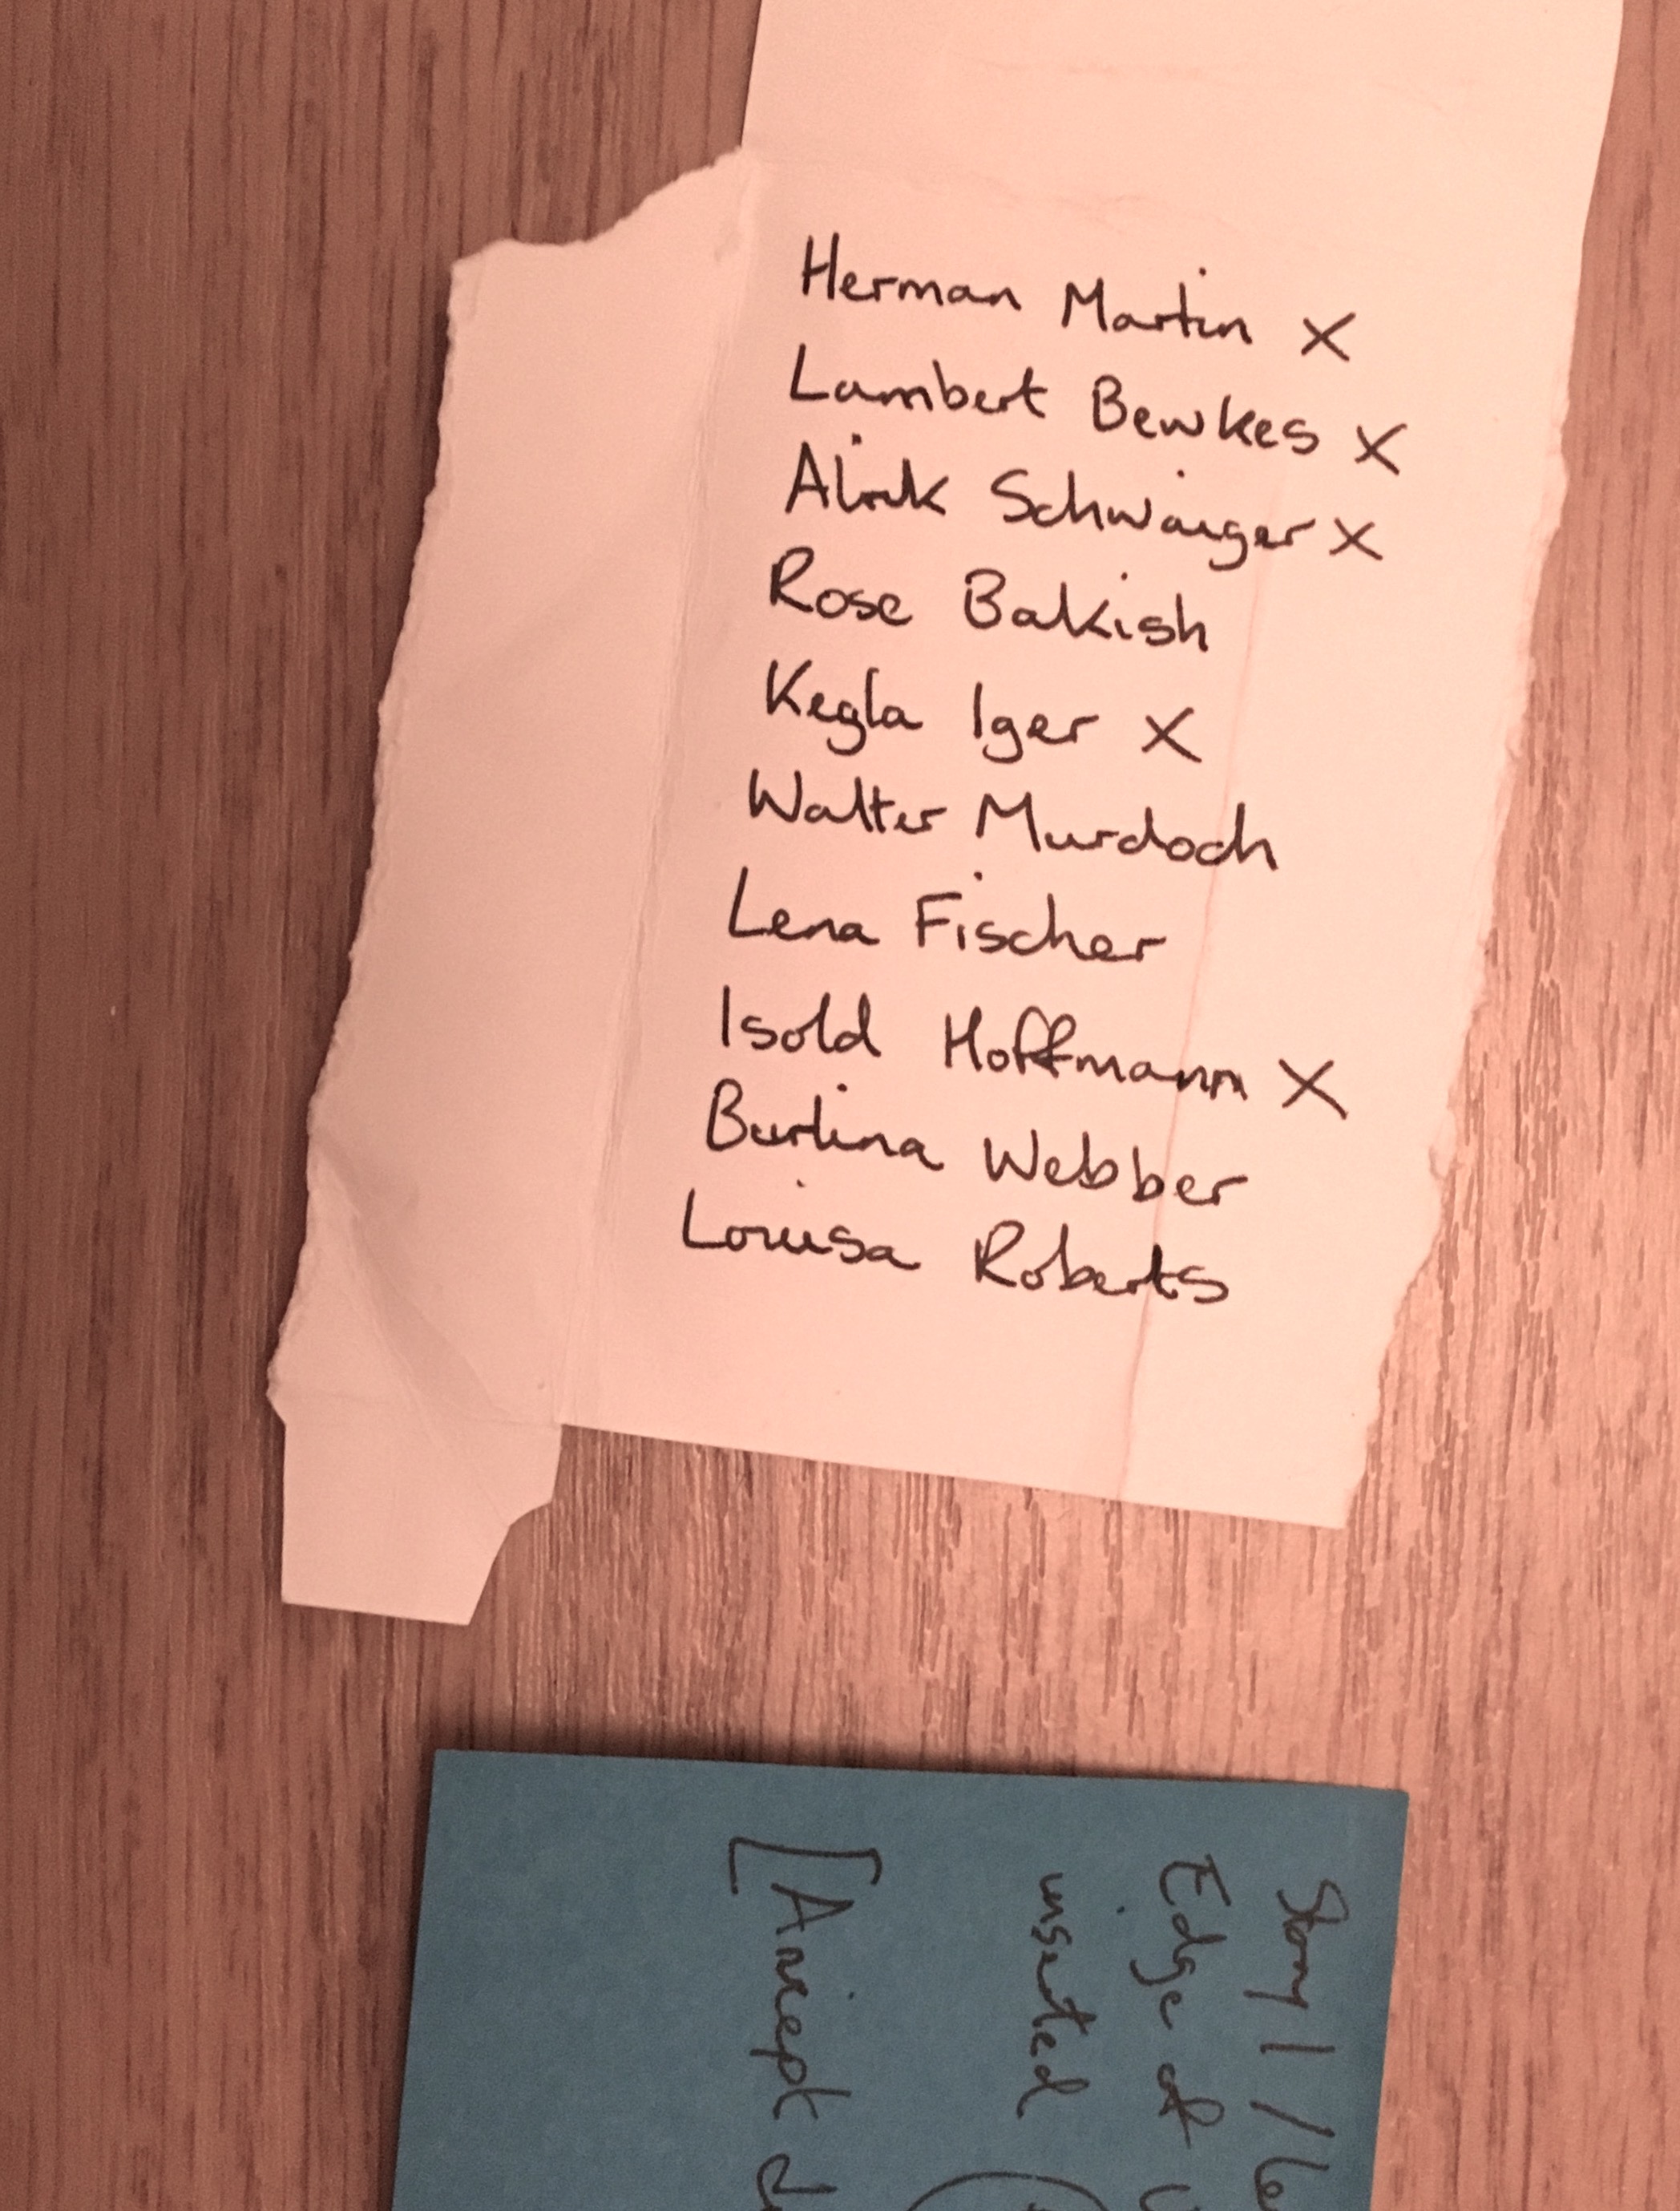 Herman Martin X
Lambert Bewkes X
Alrik Schwaiger X
Rose Bakish
Kegla Iger X
Walter Murdoch
Lena Fischer
Isold Hoffmann X
Burlina Webber
Louisa Roberts
Story 1 /
Edge of
inserted
[